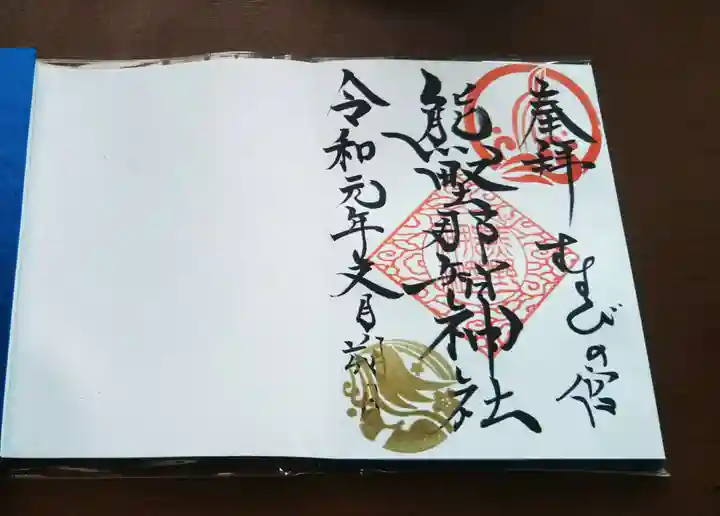 奉拝
むすびの宮
熊野那智神社
令和元年文月